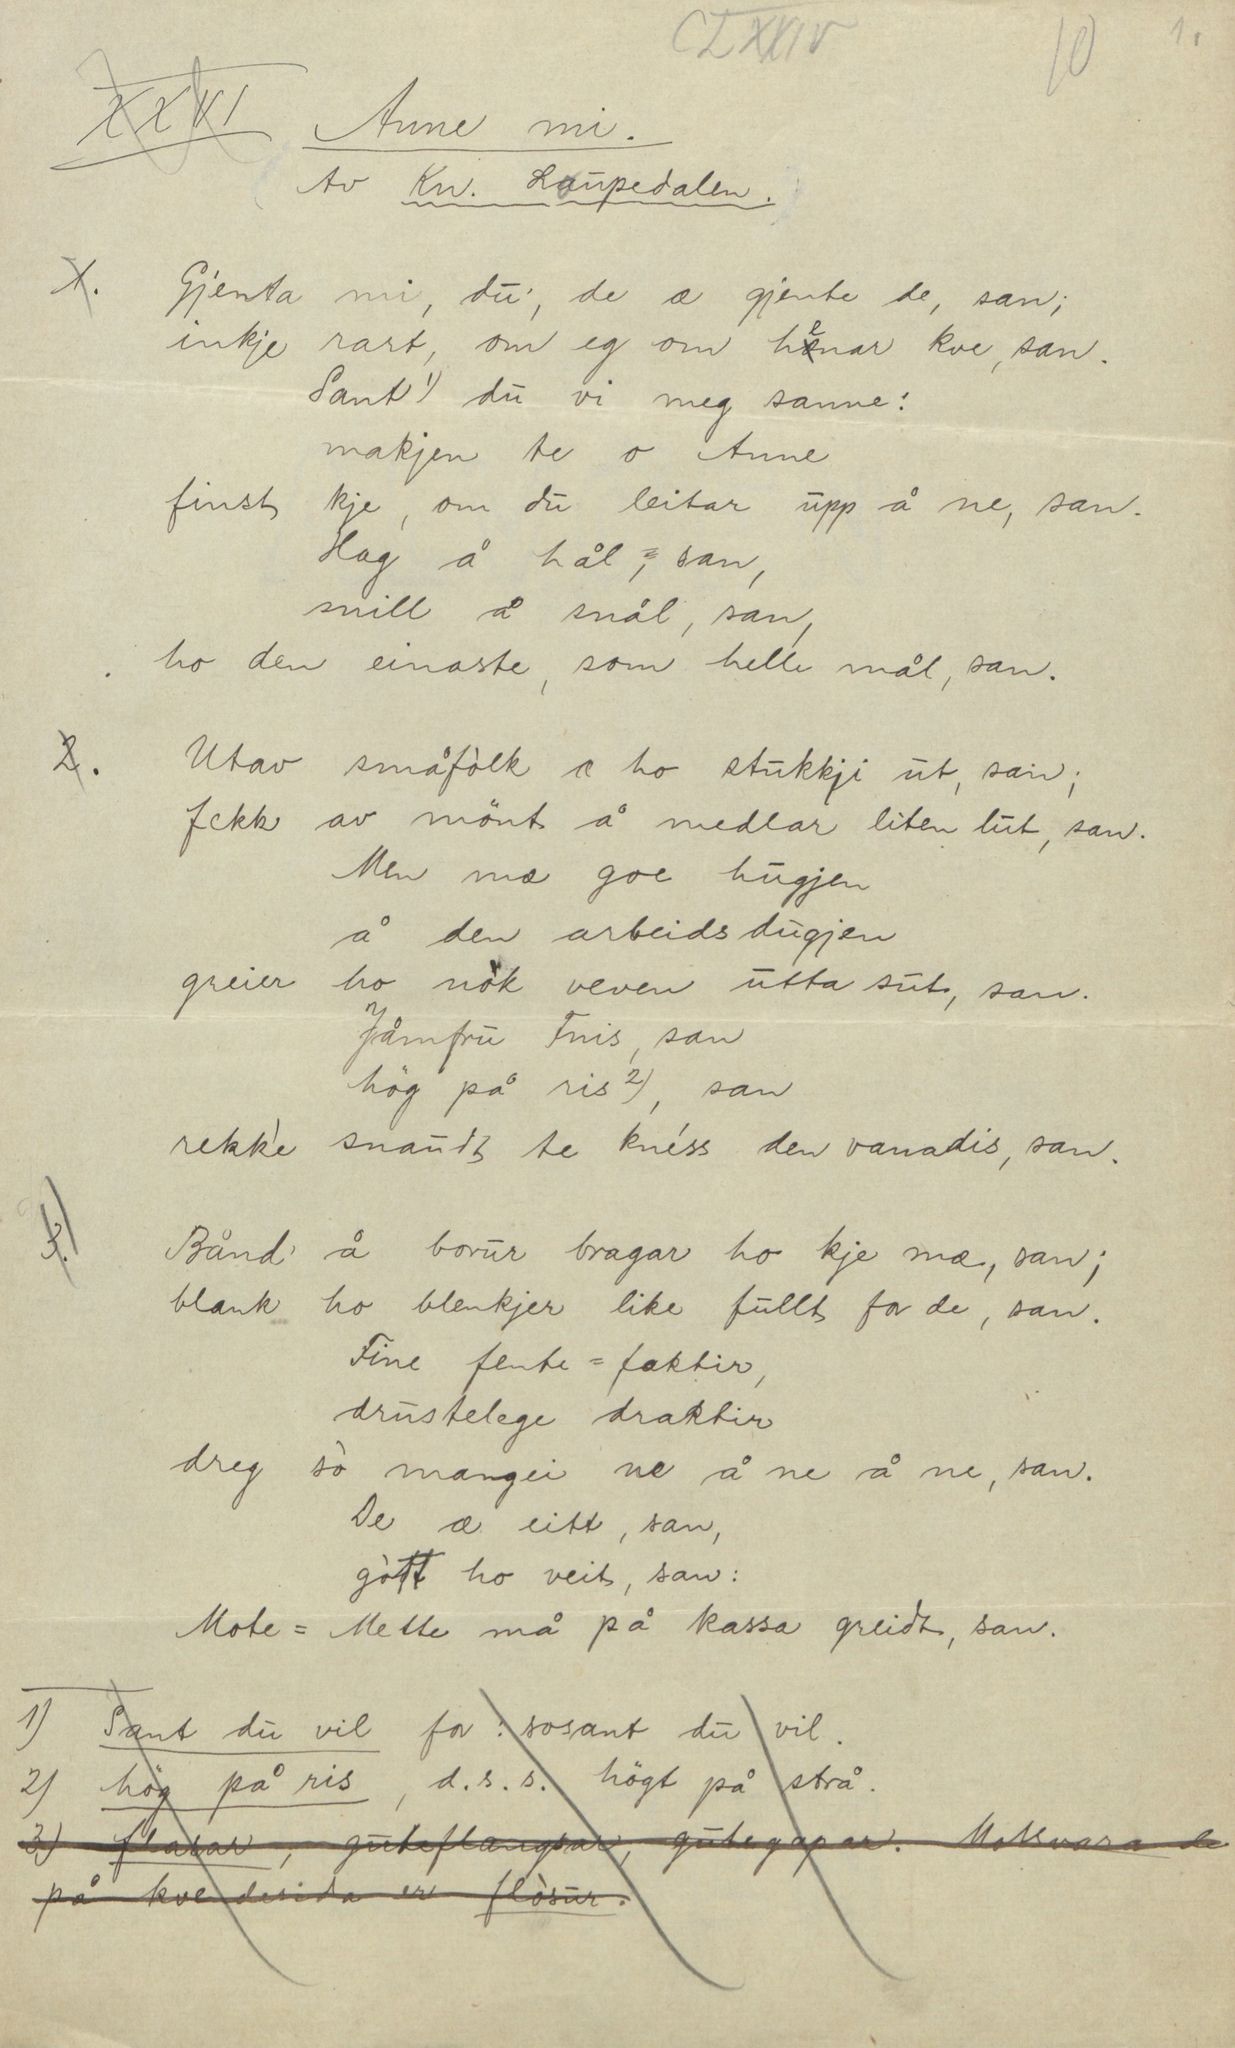 CLXXIV 10 1.
XXVI Anne mi.
Av Kn. Laupedalen.
1. Gjenta mi, du, de æ gjente de, san;
inkje rart, om eg om henar kve, san.
Sant 1) du vi meg sanne:
makjen te o Anne
finst kje, om du leitar upp å ne, san.
Hag å hål, san,
snill å snål, san,
ho den einaste, som helle mål, san.
2. Utav småfolk æ ho stukkji ut, san;
fekk av mönt å medlar liten lut, san.
Men mæ goe hugjen
å den arbeidsdugjen
greier ho nòk veven utta sut, san.
Jåmfru Fnis, san
hög på ris 2), san
rekk'e snaudt te knéss den vanadis, san.
3. Bånd å borur bragar ho kje mæ, san;
blank ho blenkjer like fullt for de, san.
Fine fente=faktir,
drustelege draktir
dreg sò mangei ne å ne å ne, san.
De æ eitt, san,
gòtt ho veit, san:
Mote=Mette må på kassa greidt, san.
1) Sant du vil for: sosant du vil.
2) hög på ris, d.s.s. högt på strå.
3) flasar, guteflangsar, gutegapar. Motsvara de
på kvendesida er flòsur.